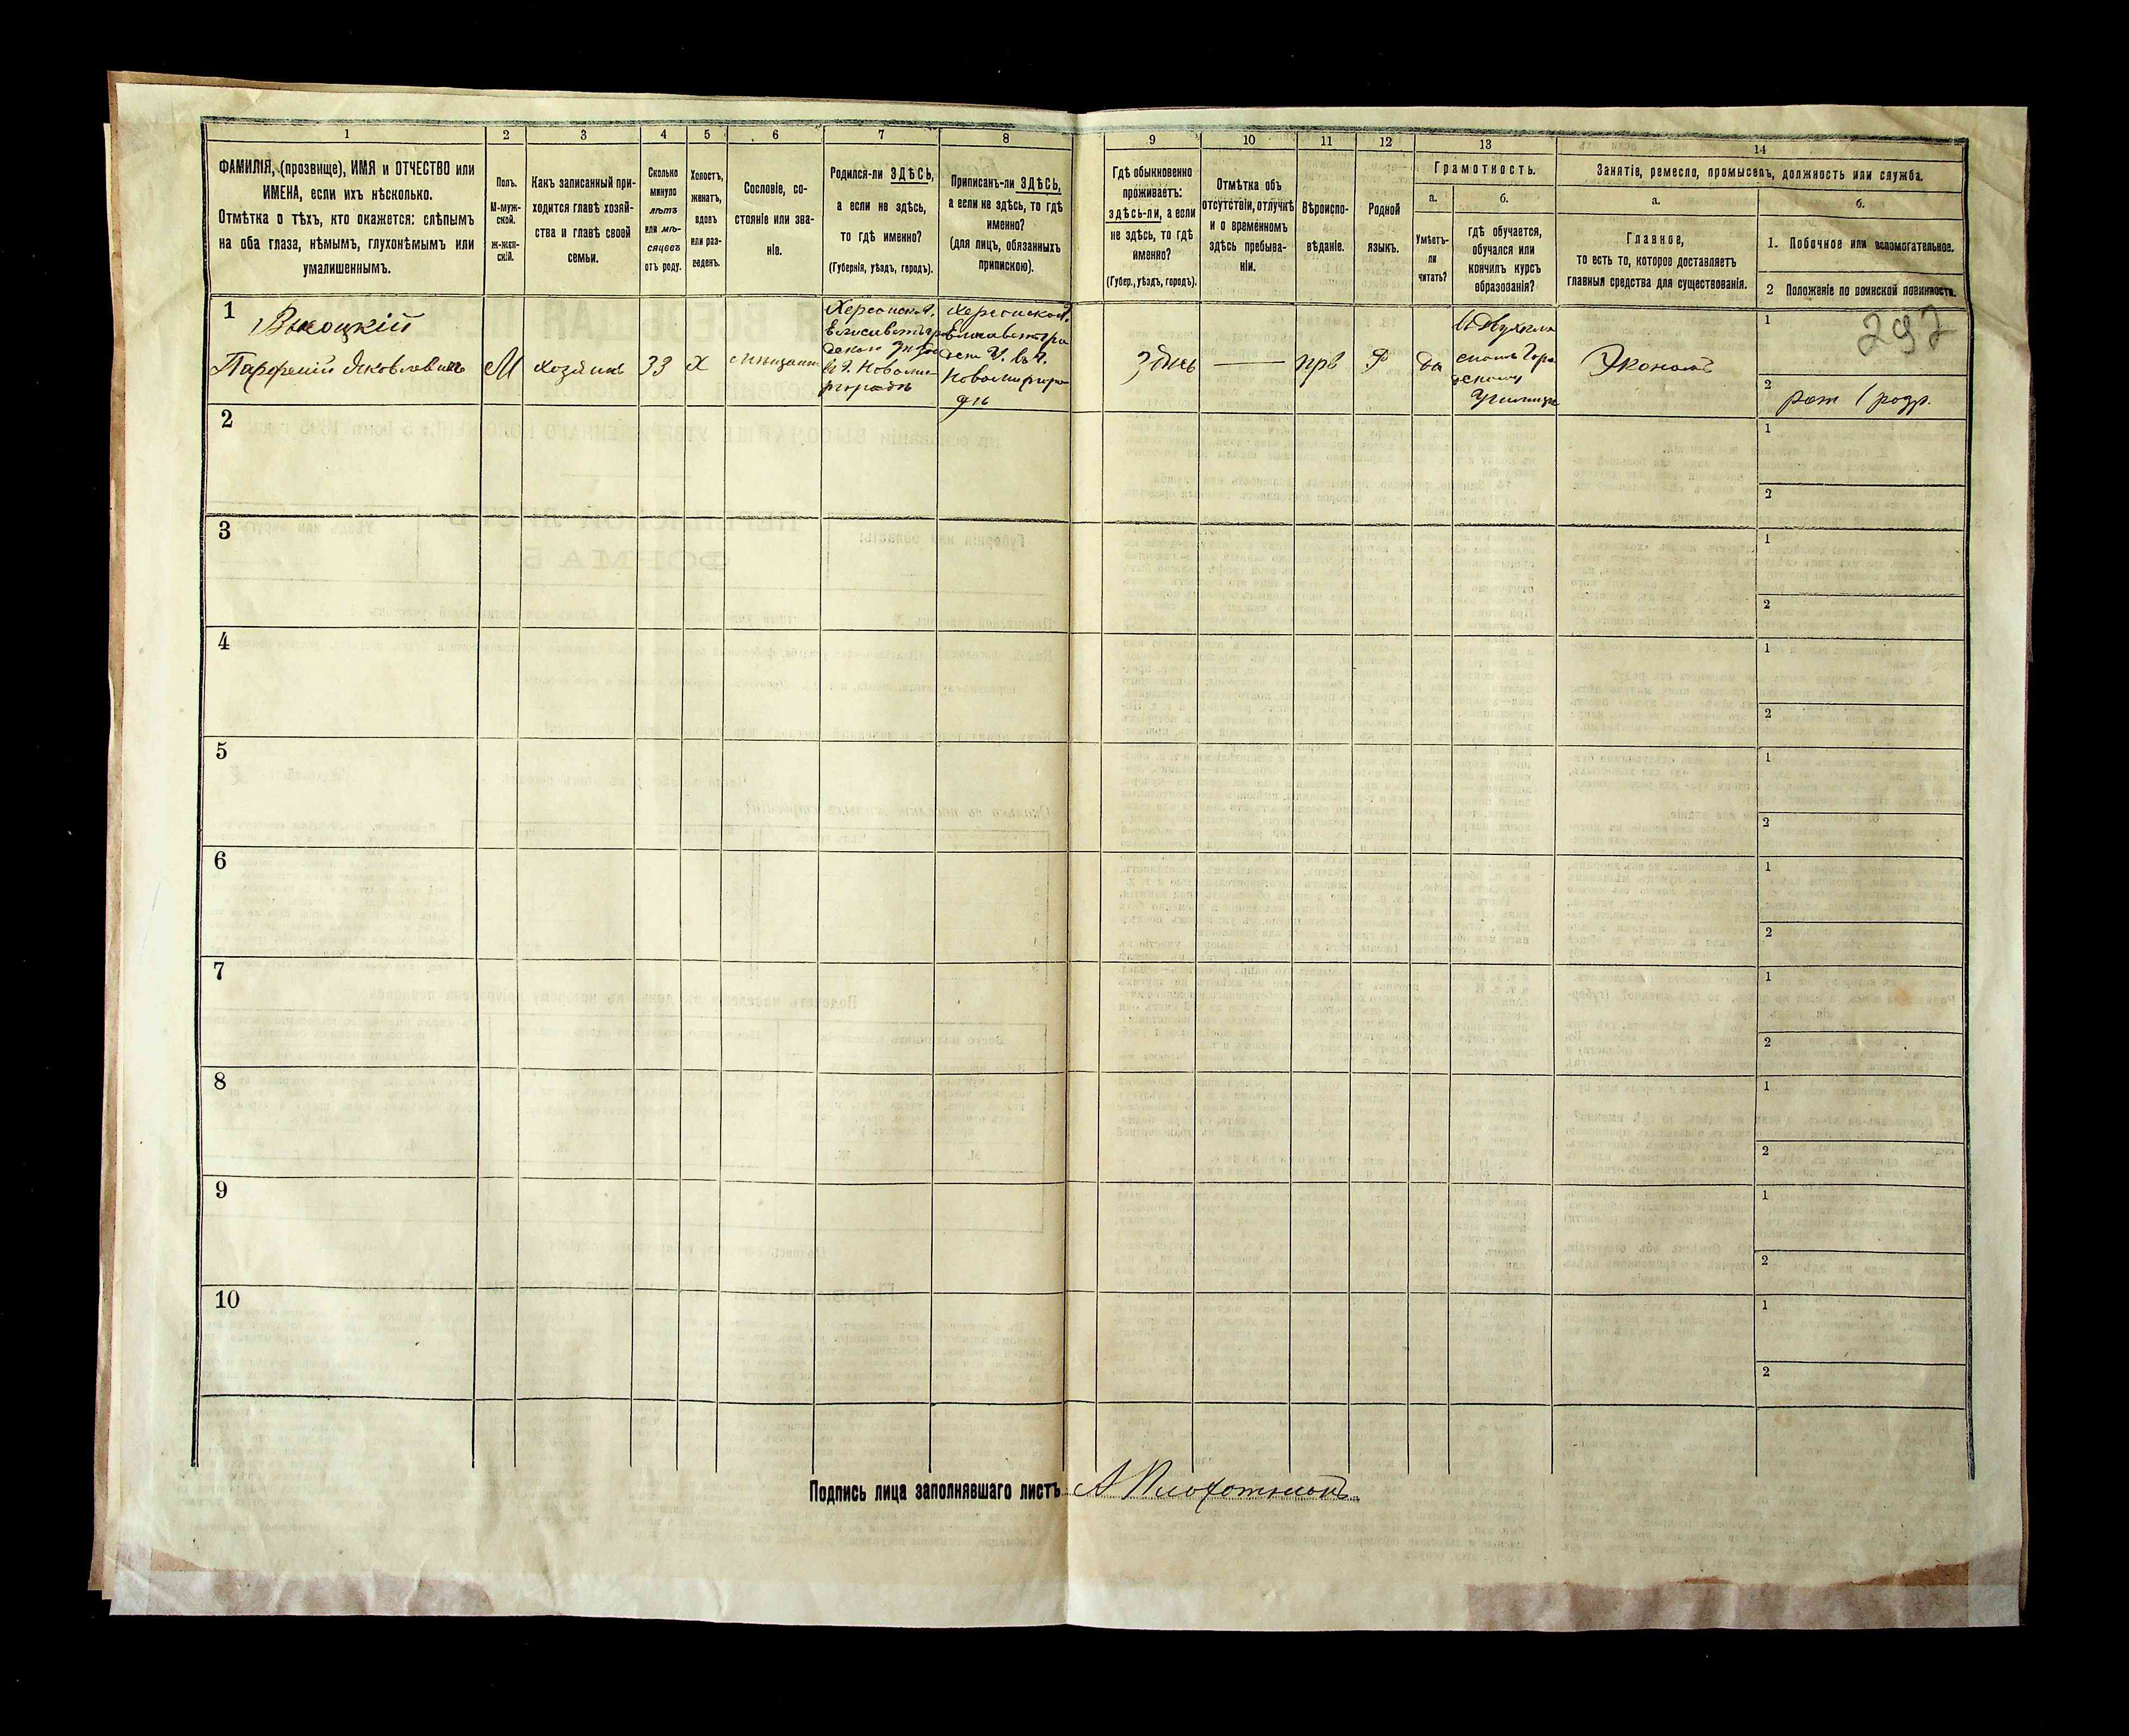 1
2
3
4
5
6
7
8
9
10
11
12
13
14
ФАМИЛІЯ, (прозвище), ИМЯ и ОТЧЕСТВО или
ИМЕНА, если ихъ нѣсколько.
Отмѣтка о тѣхъ, кто окажется: слѣпымъ
на оба глаза, нѣмымъ, глухонѣмымъ или
умалишеннымъ.
Полъ.
М-муж-
ской.
ж-жен-
скій.
Какъ записанный при-
ходится главѣ хозяй-
ства и главѣ своей
семьи.
Сколько
минуло
лѣтъ
или мѣ-
сяцевъ
отъ роду.
Холостъ,
женатъ,
вдовъ
или раз-
веденъ.
Сословіе, со-
стояніе или зва-
ніе.
Родился-ли ЗДѢСЬ,
а если не здѣсь,
то гдѣ именно?
(Губернія, уѣздъ, городъ).
Приписанъ-ли ЗДѢСЬ,
а если не здѣсь, то гдѣ
именно?
(для лицъ, обязанныхъ
припискою).
Гдѣ обыкновенно
проживаетъ:
здѣсь-ли, а если
не здѣсь, то гдѣ
именно?
(Губер., уѣздъ, городъ).
Отмѣтка объ
отсутствіи, отлучкѣ
и о временномъ
здѣсь пребыва-
ніи.
Вѣроиспо-
вѣданіе.
Родной
языкъ.
Грамотность.
а.
Умѣетъ-
ли
читать?
б.
гдѣ обучается,
обучался или
кончилъ курсъ
образованія?
Занятіе, ремесло, промыселъ, должность или служба.
а.
Главное,
то есть то, которое доставляетъ
главныя средства для существованія.
б.
1. Побочное или вспомогательное.
2 Положеніе по воинской повинности.
1
Высоцкій
Парфеній Яковлевичъ
М
хозяинъ
33
Х
мѣщанинъ
Херсонской.
Новоми-
ргородѣ
Херсонской.
Елисаветгра
Новомиргоро
дѣ
здѣсь
—
прв
Р
да
Училище
Экономъ
1
297
2
рат 1 разр.
2
1
2
3
1
2
4
1
2
5
1
2
6
1
2
7
1
2
8
1
2
9
1
2
10
1
2
Подпись лица заполнявшаго листъ